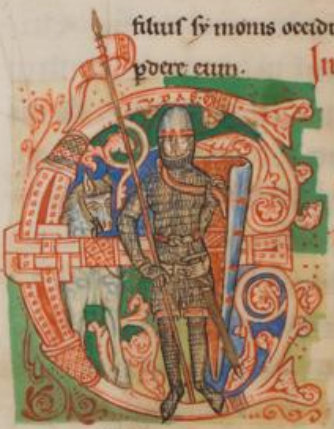 filius symonis occidi
pdere eum.
IVDAS